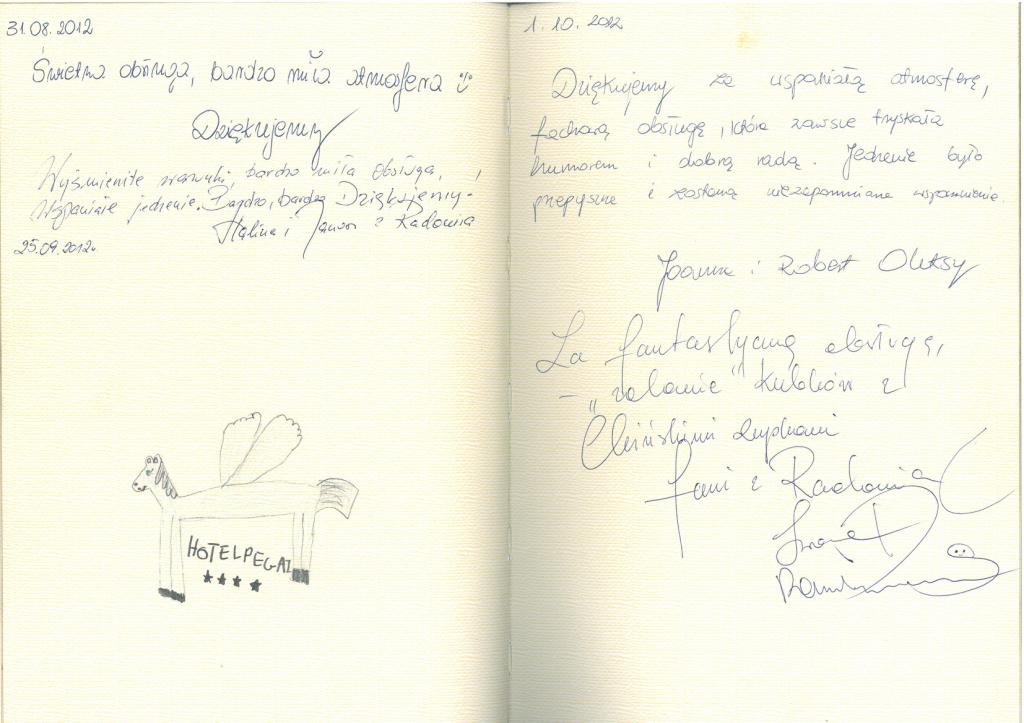 31.08.2012
Świetna obsługa, bardzo miła atmosfera
Dziękujemy
Wyśmienite warunki, bardzo miła obsługa,
wspaniałe jedzenie. Bardzo, bardzo Dziękujemy.
Halina i Janusz z Radomia
25.09.2012r.
HOTEL PEGAZ
1.10.2012
Dziękujemy za wspaniałą atmosferę,
fachową obsługę, która zawsze tryskała
humorem i dobrą radą. Jedzenie było
przepyszne i zostaną niezapomniane wspomnienia.
Joanna i Robert Oleksy
Za fantastyczną obsługę,
– „zalanie" kubków z
Chińskimi zupkami
fani z Radomia